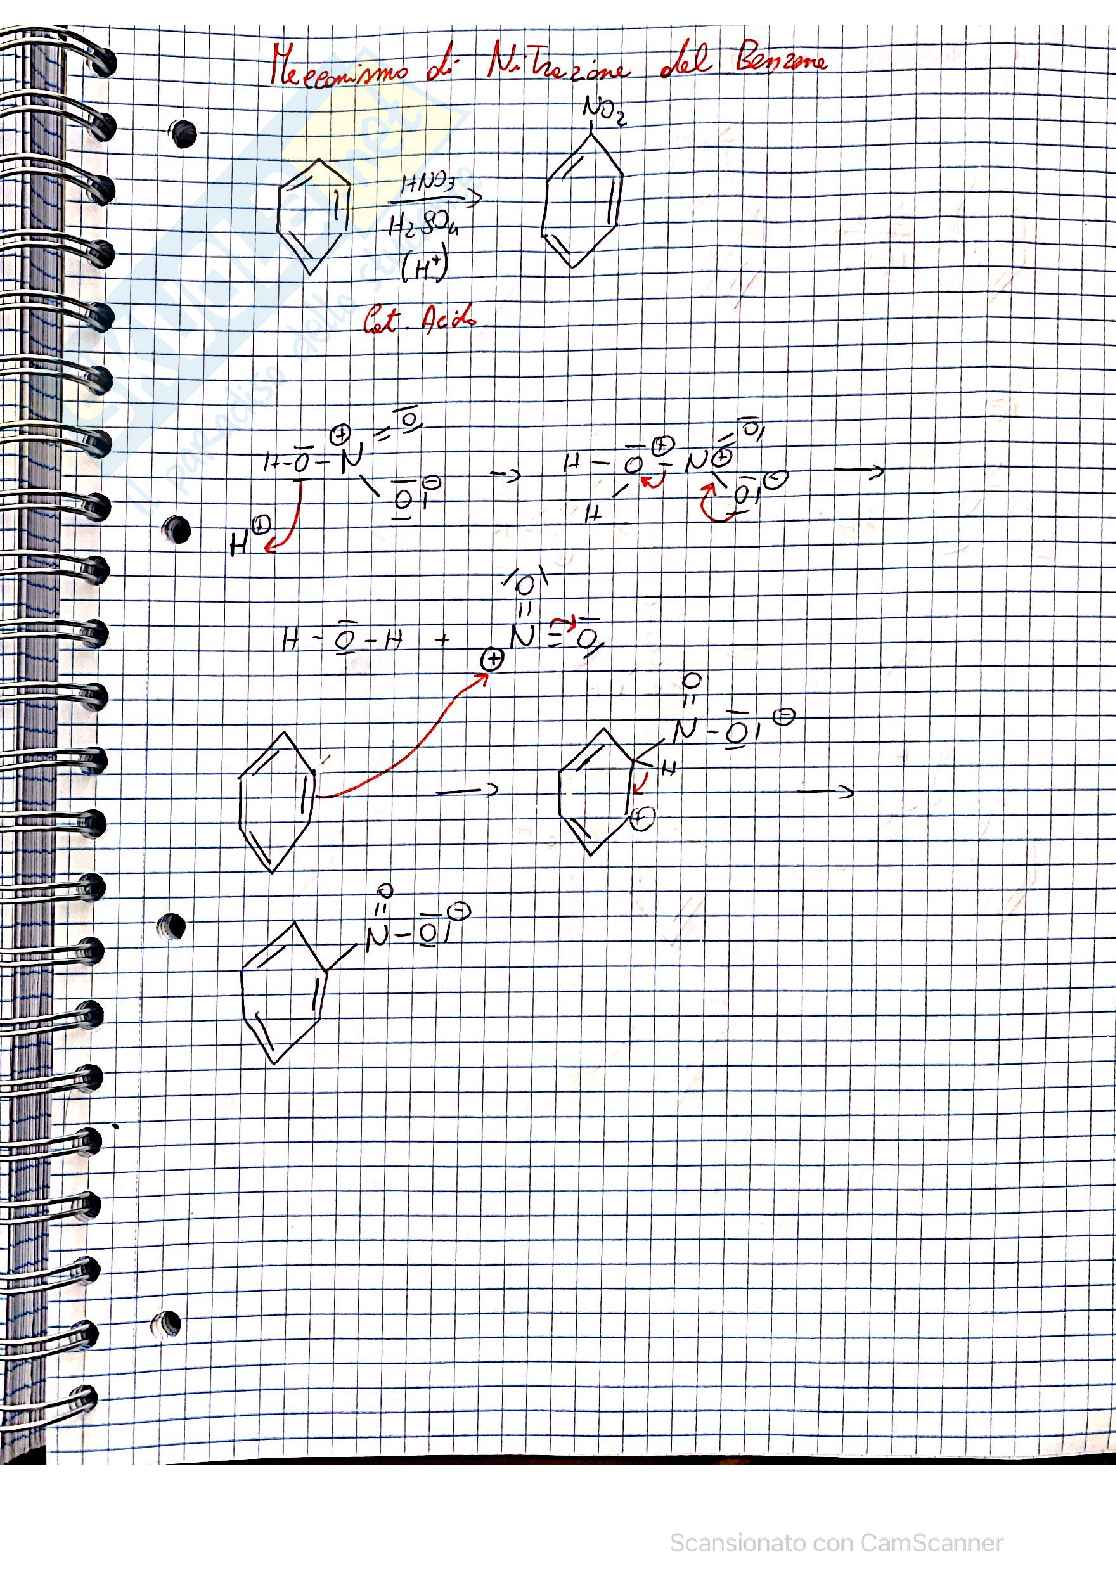 Meccanismo di Nitrazione del Benzene
NO2
HNO3
H2SO4
(H+)
Cat. Acido
H-O-N ⊕ =O
O ⊖
H ⊕
H - O ⊕ - N ⊕ =O
H
O ⊖
O
H - O - H + N = O
⊕
O
N - O ⊖
H
⊕
O
N - O ⊖
Scansionato con CamScanner